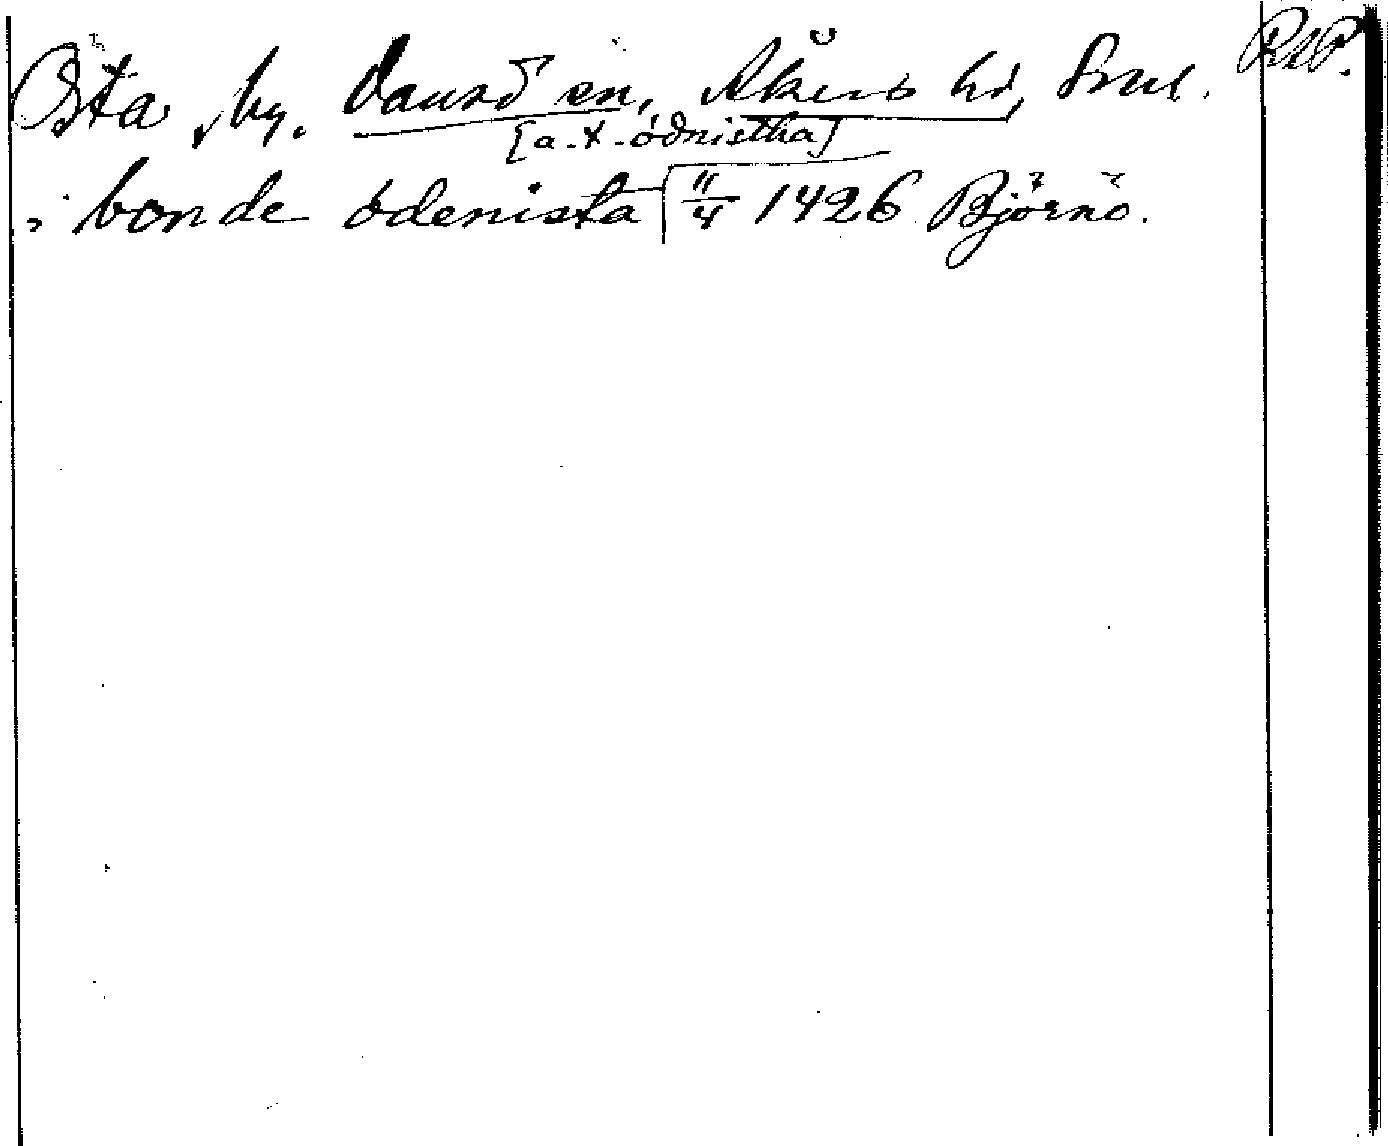 Östa, by. Daurö sn, Åkers hd, Srml. RAP.
[a-x-ödnistha]
i bonde ódenista 11/4 1426 Björnö.